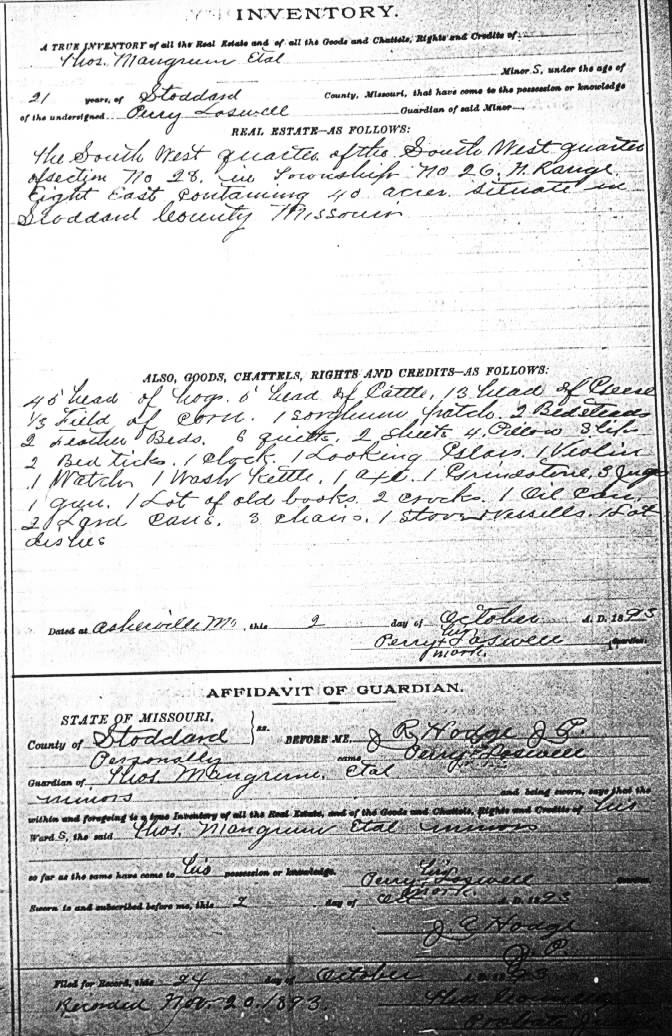 INVENTORY.
A TRUE INVENTORY of all the Real Estate and of all the Goods and Chattels, Rights and Credits of
Thos. Mangrum Etal
Minor S, under the age of
21 years, of Stoddard County, Missouri, that have come to the possession or knowledge
of the undersigned Perry Loswell Guardian of said Minor
REAL ESTATE—AS FOLLOWS:
The South West quarter of the South West quarter
of section No 28. in Township No 26, N. Range
Eight East containing 40 acres situate in
Stoddard County Missouri
ALSO, GOODS, CHATTELS, RIGHTS AND CREDITS—AS FOLLOWS:
head of hogs. head of Cattle, 13 head of Geese
1/3 Field of corn. 1 sorghum patch. 2 Bedsteads
2 Feather Beds. 6 quilts. 2 sheets 4 Pillow 3 slip
2 Bed ticks. 1 clock. 1 Looking Glass. 1 Violin
1 Watch 1 Wash Kettle. 1 axe. 1 Grindstone. 3 Jugs
1 gun. 1 Lot of old books. 2 crocks. 1 Oil Can.
2 Lard Cans. 3 chairs. 1 Stove & Vessills. 1 Lot
dishes
Dated at Asherville Mo, this 2 day of October A. D. 1893
his
Perry + Loswell Guardian.
mark.
AFFIDAVIT OF GUARDIAN.
STATE OF MISSOURI,
County of Stoddard ss. BEFORE ME, J R Hodge J P.
Personally came Perry Loswell
Guardian of Thos. Mangrum, Etal
minors and being sworn, says that the
within and foregoing is a true Inventory of all the Real Estate, and of the Goods and Chattels, Rights and Credits of his
Ward S, the said Thos. Mangrum Etal minors
so far as the same have come to his possession or knowledge.
his
Perry + Loswell Guardian.
mark.
Sworn to and subscribed before me, this 2 day of Oct A. D. 1893
Hodge
J. P.
Filed for Record, this 24 day of October A. D. 1893
Recorded Nov. 20. 1893.
Probate